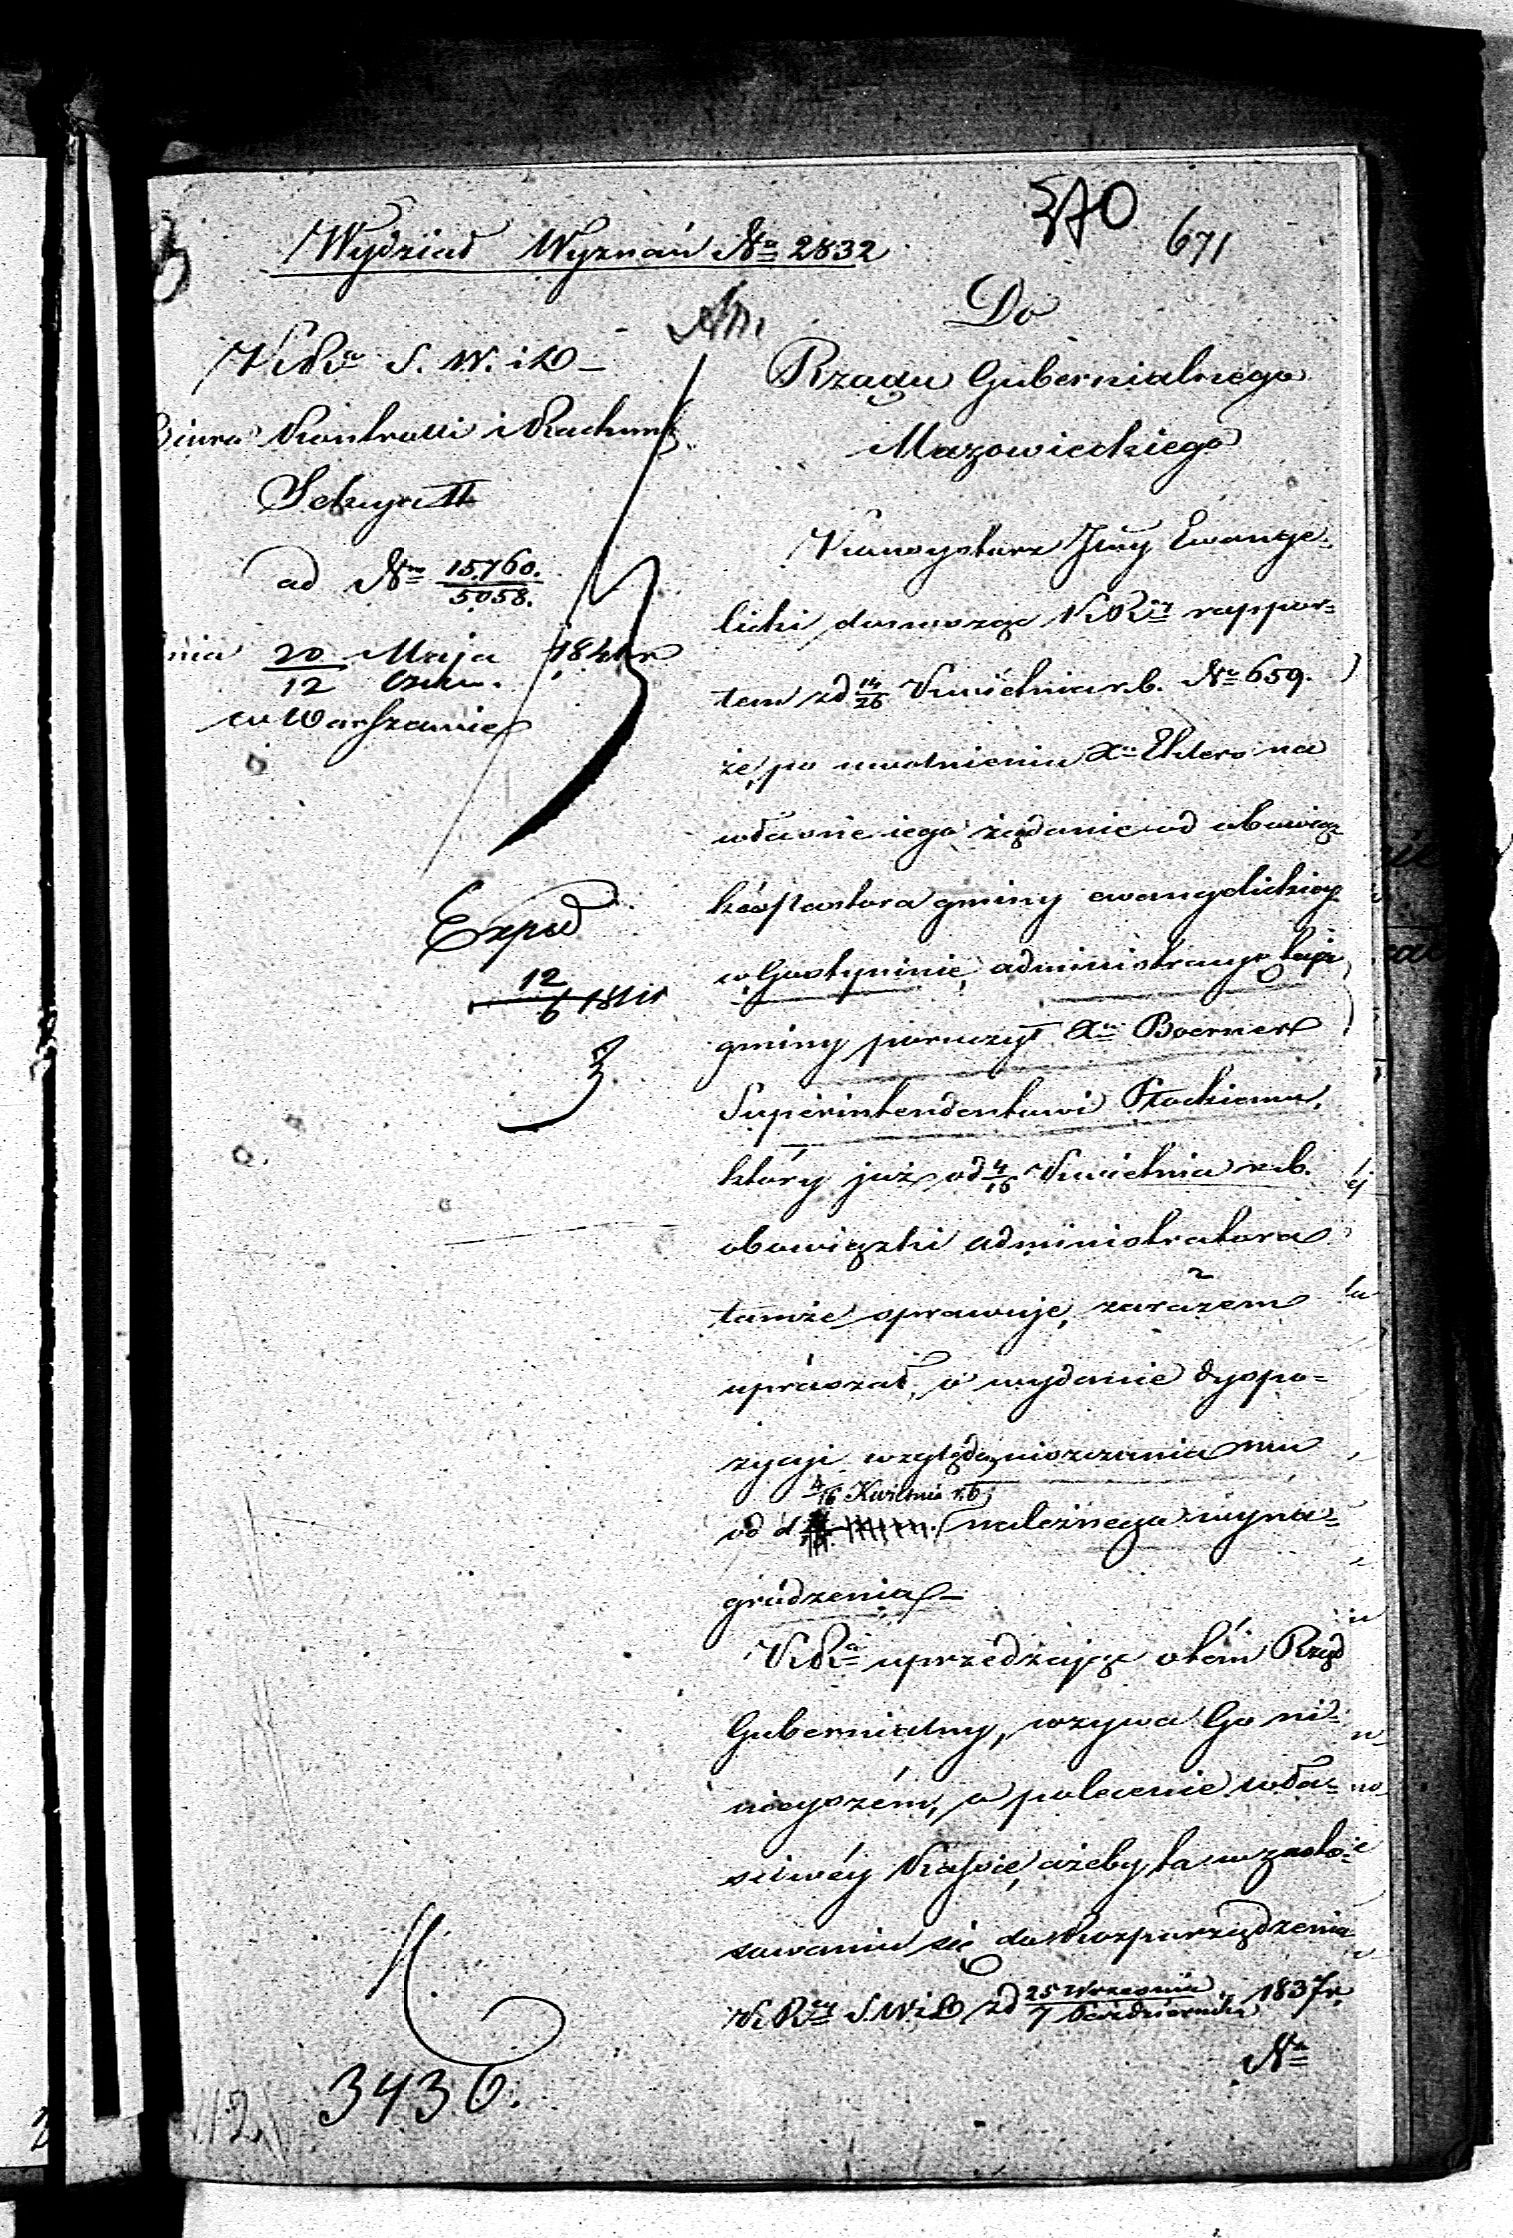 370
671
Wydział Wyznań No 2832
K.R.a S. W. i D.
Biuro Kontrolli i Rachunk.
Sekcya II
ad Nm 15,760.
5058.
nia 20 Maja 1841 r
12 Czerw.
w Warszawie
Exped
12
6 1841
3436.
Do
Rządu Gubernialnego
Mazowieckiego
Konsystorz Jlny Ewange-
licki donosząc K.R.i rappor-
tem zd 14/26 Kwietnia r.b. No 659.
że po uwolnieniu Xa Ehlers na
własne iego żądanie od obowiąz-
ków Pastora gminy ewangelickiej
w Gostyninie, administracyę tejże
gminy poruczył Xu Boerner
Superintendentowi Płockiemu,
który już od 4/16 Kwietnia r.b.
obowiązki administratora
tamże sprawuje, zarazem
upraszał o wydanie dyspo-
zycji względem niszczenia mu
4/16 Kwietnia r.b.
od d należnego wyna-
grodzenia
K.R.a uprzedzając o tém Rząd
Gubernialny, wzywa Go ni-
nieyszém, o polecenie wła-
sciwéy Kassie, ażeby ta w zasto-
sowaniu się do Rozporządzenia
K.R.i S.W.i D. zd 25 Września / 7 Października 1837 r.
No